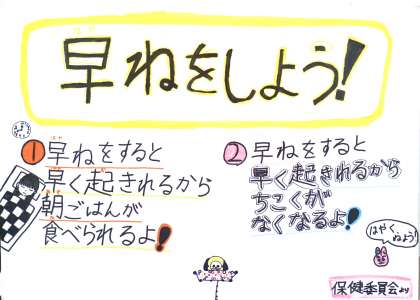 早ねをしよう!
①早ねをすると
早く起きれるから
朝ごはんが
食べられるよ!
②早ねをすると
早く起きれるから
ちこくが
なくなるよ!
はやく
ねよう!
保健委員会より